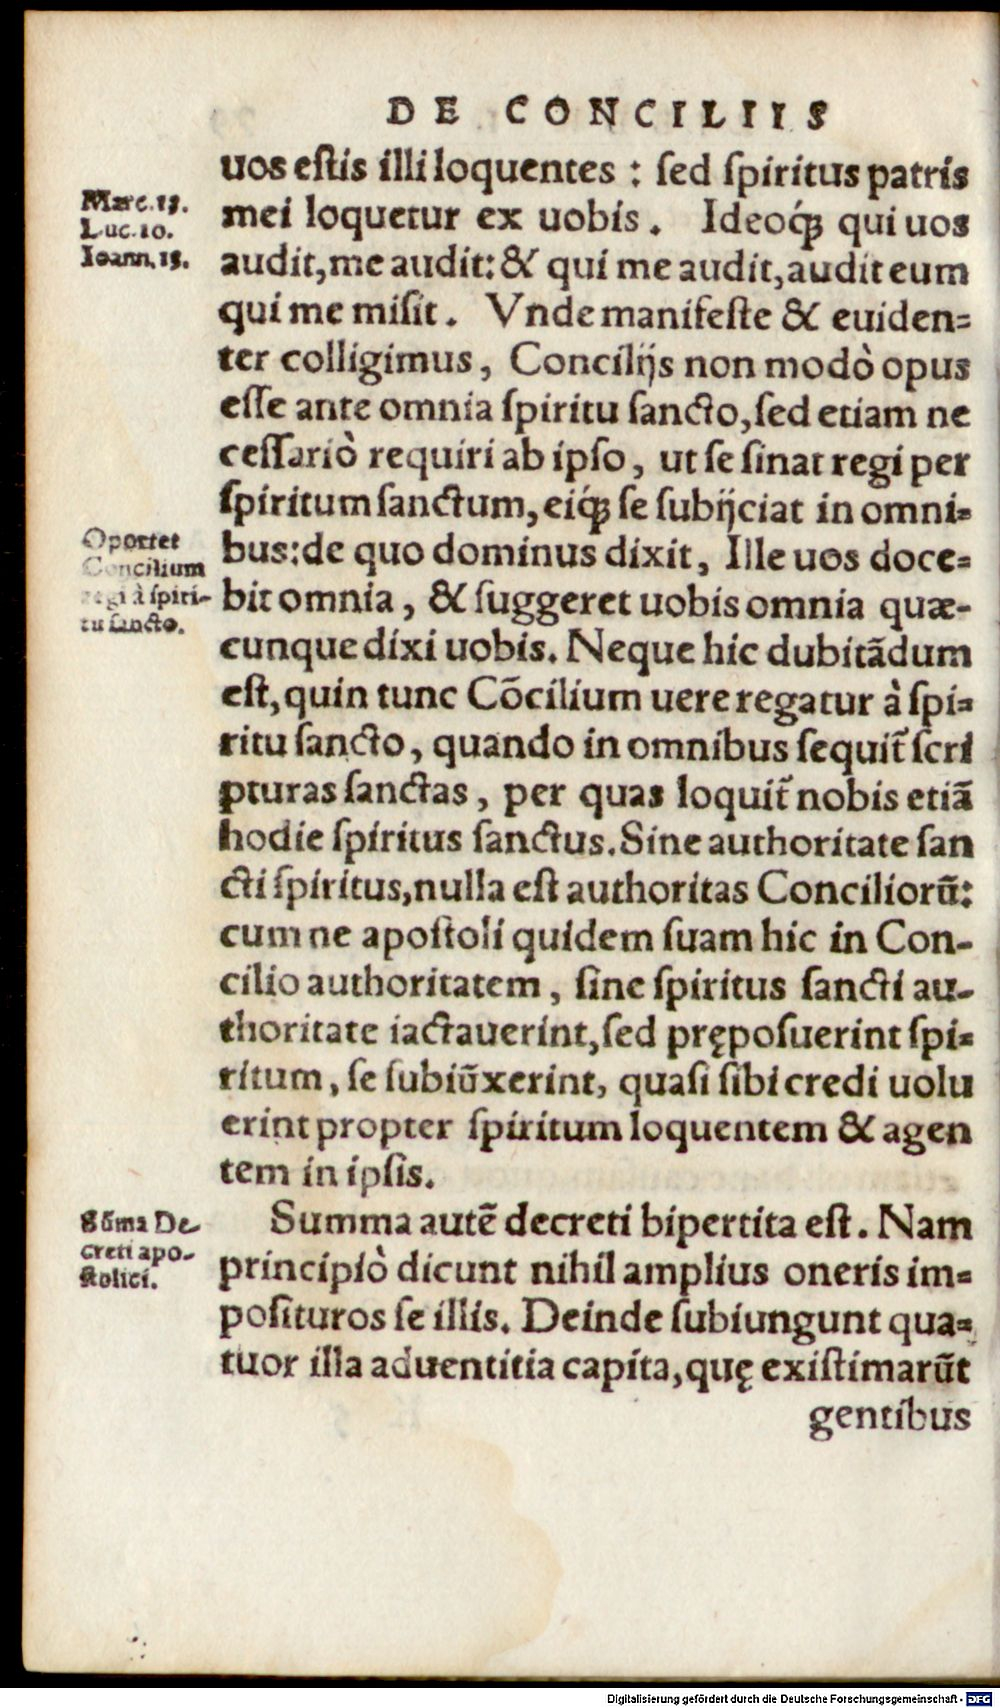 DE CONCILIIS
uos estis illi loquentes : sed spiritus patris
mei loquetur ex uobis. Ideoq́ꝫ qui uos
audit, me audit: & qui me audit, audit eum
qui me misit. Vnde manifeste & euiden-
ter colligimus, Concilijs non modò opus
esse ante omnia spiritu sancto, sed etiam ne
cessariò requiri ab ipso, ut se sinat regi per
spiritum sanctum, eiq́ꝫ se subijciat in omni-
bus: de quo dominus dixit, Ille uos doce-
bit omnia, & suggeret uobis omnia quæ-
cunque dixi uobis. Neque hic dubitādum
est, quin tunc Cōcilium uere regatur à spi-
ritu sancto, quando in omnibus sequit̃ scri
pturas sanctas, per quas loquit̃ nobis etiā
hodie spiritus sanctus. Sine authoritate san
cti spiritus, nulla est authoritas Conciliorũ:
cum ne apostoli quidem suam hic in Con-
cilio authoritatem, sine spiritus sancti au-
thoritate iactauerint, sed pręposuerint spi-
ritum, se subiũxerint, quasi sibi credi uolu
erint propter spiritum loquentem & agen
tem in ipsis.
Summa autẽ decreti bipertita est. Nam
principiò dicunt nihil amplius oneris im-
posituros se illis. Deinde subiungunt qua-
tuor illa aduentitia capita, quę existimarũt
gentibus
Marc. 13.
Luc. 10.
Ioann. 15.
Oportet
Concilium
regi à spiri-
tu sancto.
Sũma De-
creti apo-
stolici.
Digitalisierung gefördert durch die Deutsche Forschungsgemeinschaft - DFG